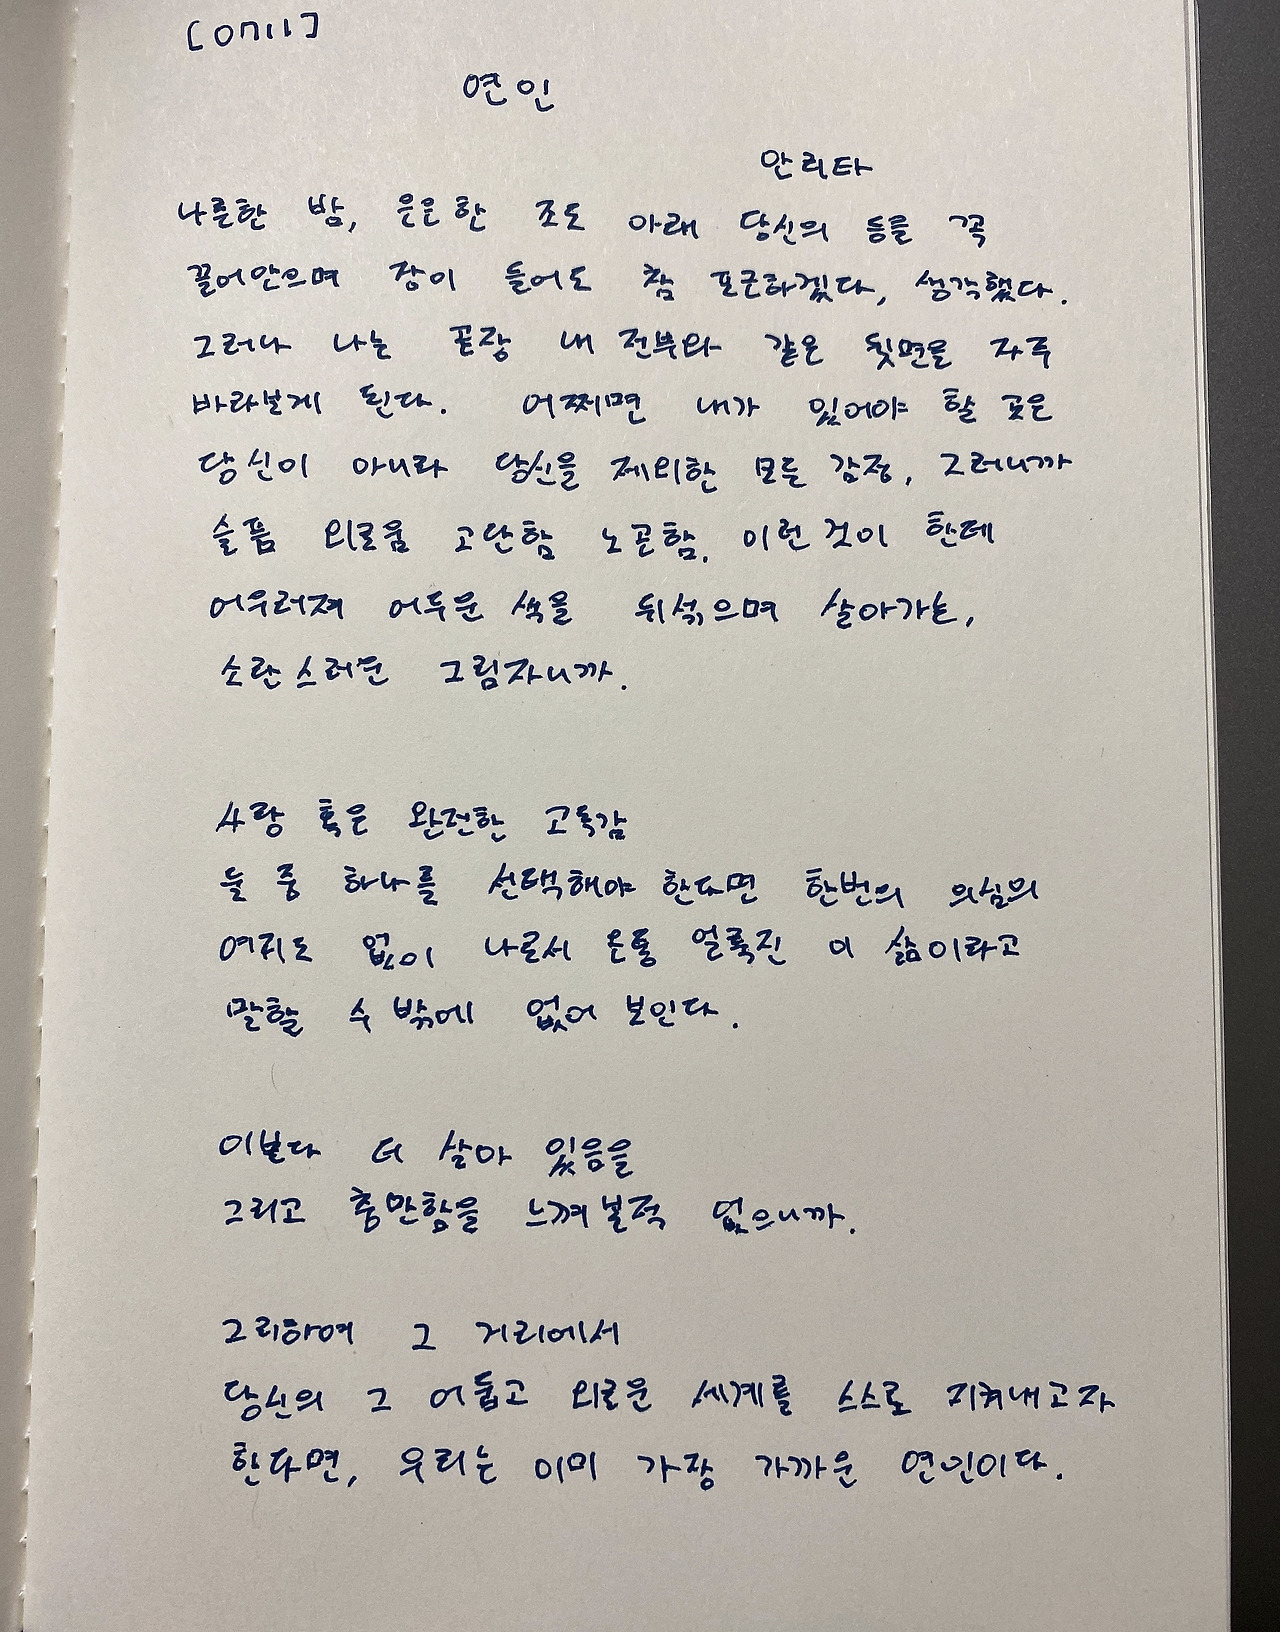 [0711]
연인
안리타
나른한 밤, 은은한 조도 아래 당신의 등을 꼭
끌어안으며 잠이 들어도 참 포근하겠다, 생각했다.
그러나 나는 끝장 내 전부와 같은 뒷면을 자주
바라보게 된다. 어쩌면 내가 있어야 할 곳은
당신이 아니라 당신을 제외한 모든 감정, 그러니까
슬픔 외로움 고단함 노곤함, 이런 것이 한데
어우러져 어두운 색을 뒤섞으며 살아가는,
소란스러운 그림자니까.
사랑 혹은 완전한 고독감
둘 중 하나를 선택해야 한다면 한번의 의심의
여지도 없이 나로서 온통 얼룩진 이 삶이라고
말할 수 밖에 없어 보인다.
이보다 더 살아 있음을
그리고 충만함을 느껴본적 없으니까.
그리하여 그 거리에서
당신의 그 어둡고 외로운 세계를 스스로 지켜내고자
한다면, 우리는 이미 가장 가까운 연인이다.